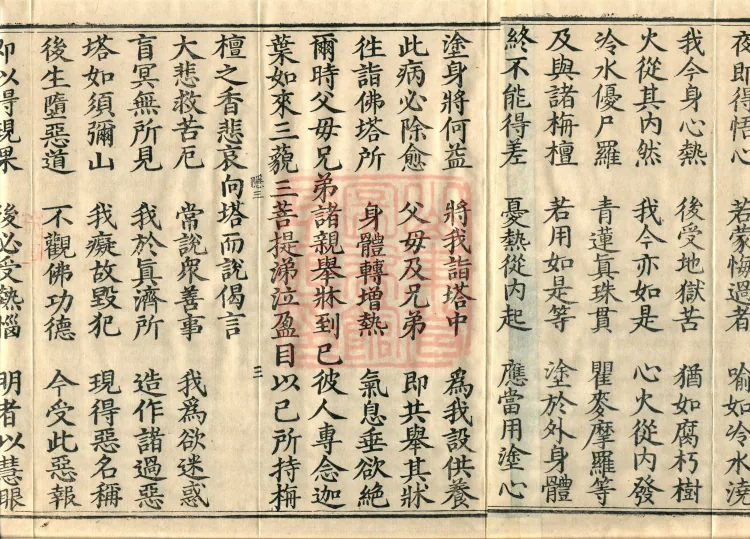 夜即得悟心 若蒙悔過者 喻如冷水澆
我今身心熱 後受地獄苦 猶如腐朽樹
火從其內然 我今亦如是 心火從內發
冷水優尸羅 青蓮真珠貫 瞿麥摩羅等
及與諸栴檀 若用如是等 塗於外身體
終不能得差 憂熱從內起 應當用塗心
塗身將何益 將我詣塔中 為我設供養
此病必除愈 父母及兄弟 即共舉其牀
往詣佛塔所 身體轉增熱 氣息垂欲絕
爾時父母兄弟諸親舉牀到已彼人專念迦
葉如來三藐三菩提涕泣盈目以己所持栴
檀之香悲哀向塔而說偈言
大悲救苦厄 常說眾善事 我為欲迷惑
盲冥無所見 我於真濟所 造作諸過惡
塔如須彌山 我癡故毀犯 現得惡名稱
後生墮惡道 不觀佛功德 今受此惡報
即以得現果 後必受熱惱 明者以慧眼
三